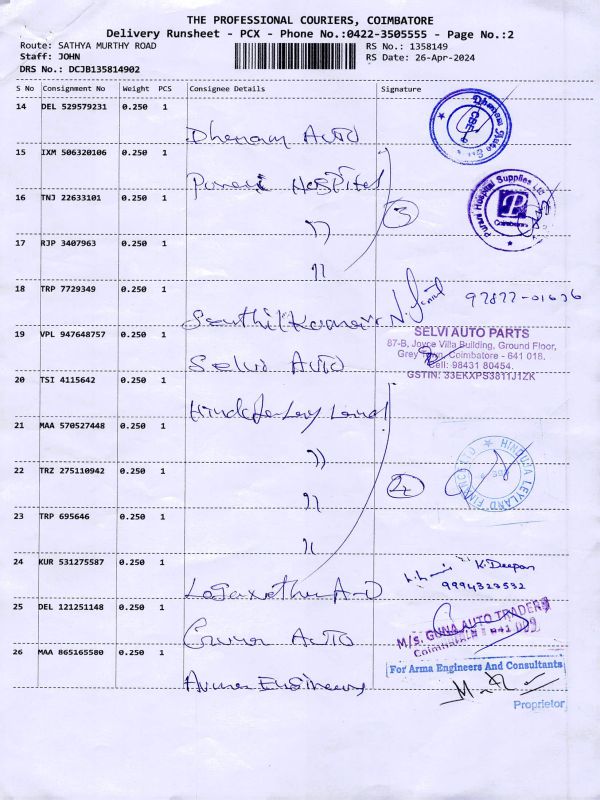 THE PROFESSIONAL COURIERS, COIMBATORE
Delivery Runsheet - PCX - Phone No.:0422-3505555 - Page No.:2
Route: SATHYA MURTHY ROAD RS No.: 1358149
Staff: JOHN RS Date: 26-Apr-2024
DRS No.: DCJB135814902
S No Consignment No Weight PCS Consignee Details Signature
14 DEL 529579231 0.250 1 Dhanam Auto
Dhanam Auto
CBE
15 IXM 506320106 0.250 1 Purani Hospital
16 TNJ 22633101 0.250 1 ,, 3
Purani Hospital Supplies
Coimbatore
17 RJP 3407963 0.250 1 ,,
18 TRP 7729349 0.250 1 Senthil Kumar 97877-01636
19 VPL 947648757 0.250 1 Selvi Auto
SELVI AUTO PARTS
87-B, Joyce Villa Building, Ground Floor,
Grey Town, Coimbatore - 641 018.
Cell: 98431 80454.
GSTIN: 33EKXPS3811J1ZK
20 TSI 4115642 0.250 1
21 MAA 570527448 0.250 1 ,,
22 TRZ 275110942 0.250 1 ,,
HINDUJA LEYLAND FINANCE
23 TRP 695646 0.250 1 ,,
24 KUR 531275587 0.250 1
K.Deepan
9994323532
25 DEL 121251148 0.250 1 Guna Auto
M/s. GUNA AUTO TRADERS
Coimbatore - 641 009
26 MAA 865165580 0.250 1 Arma Engineers
For Arma Engineers And Consultants
Proprietor